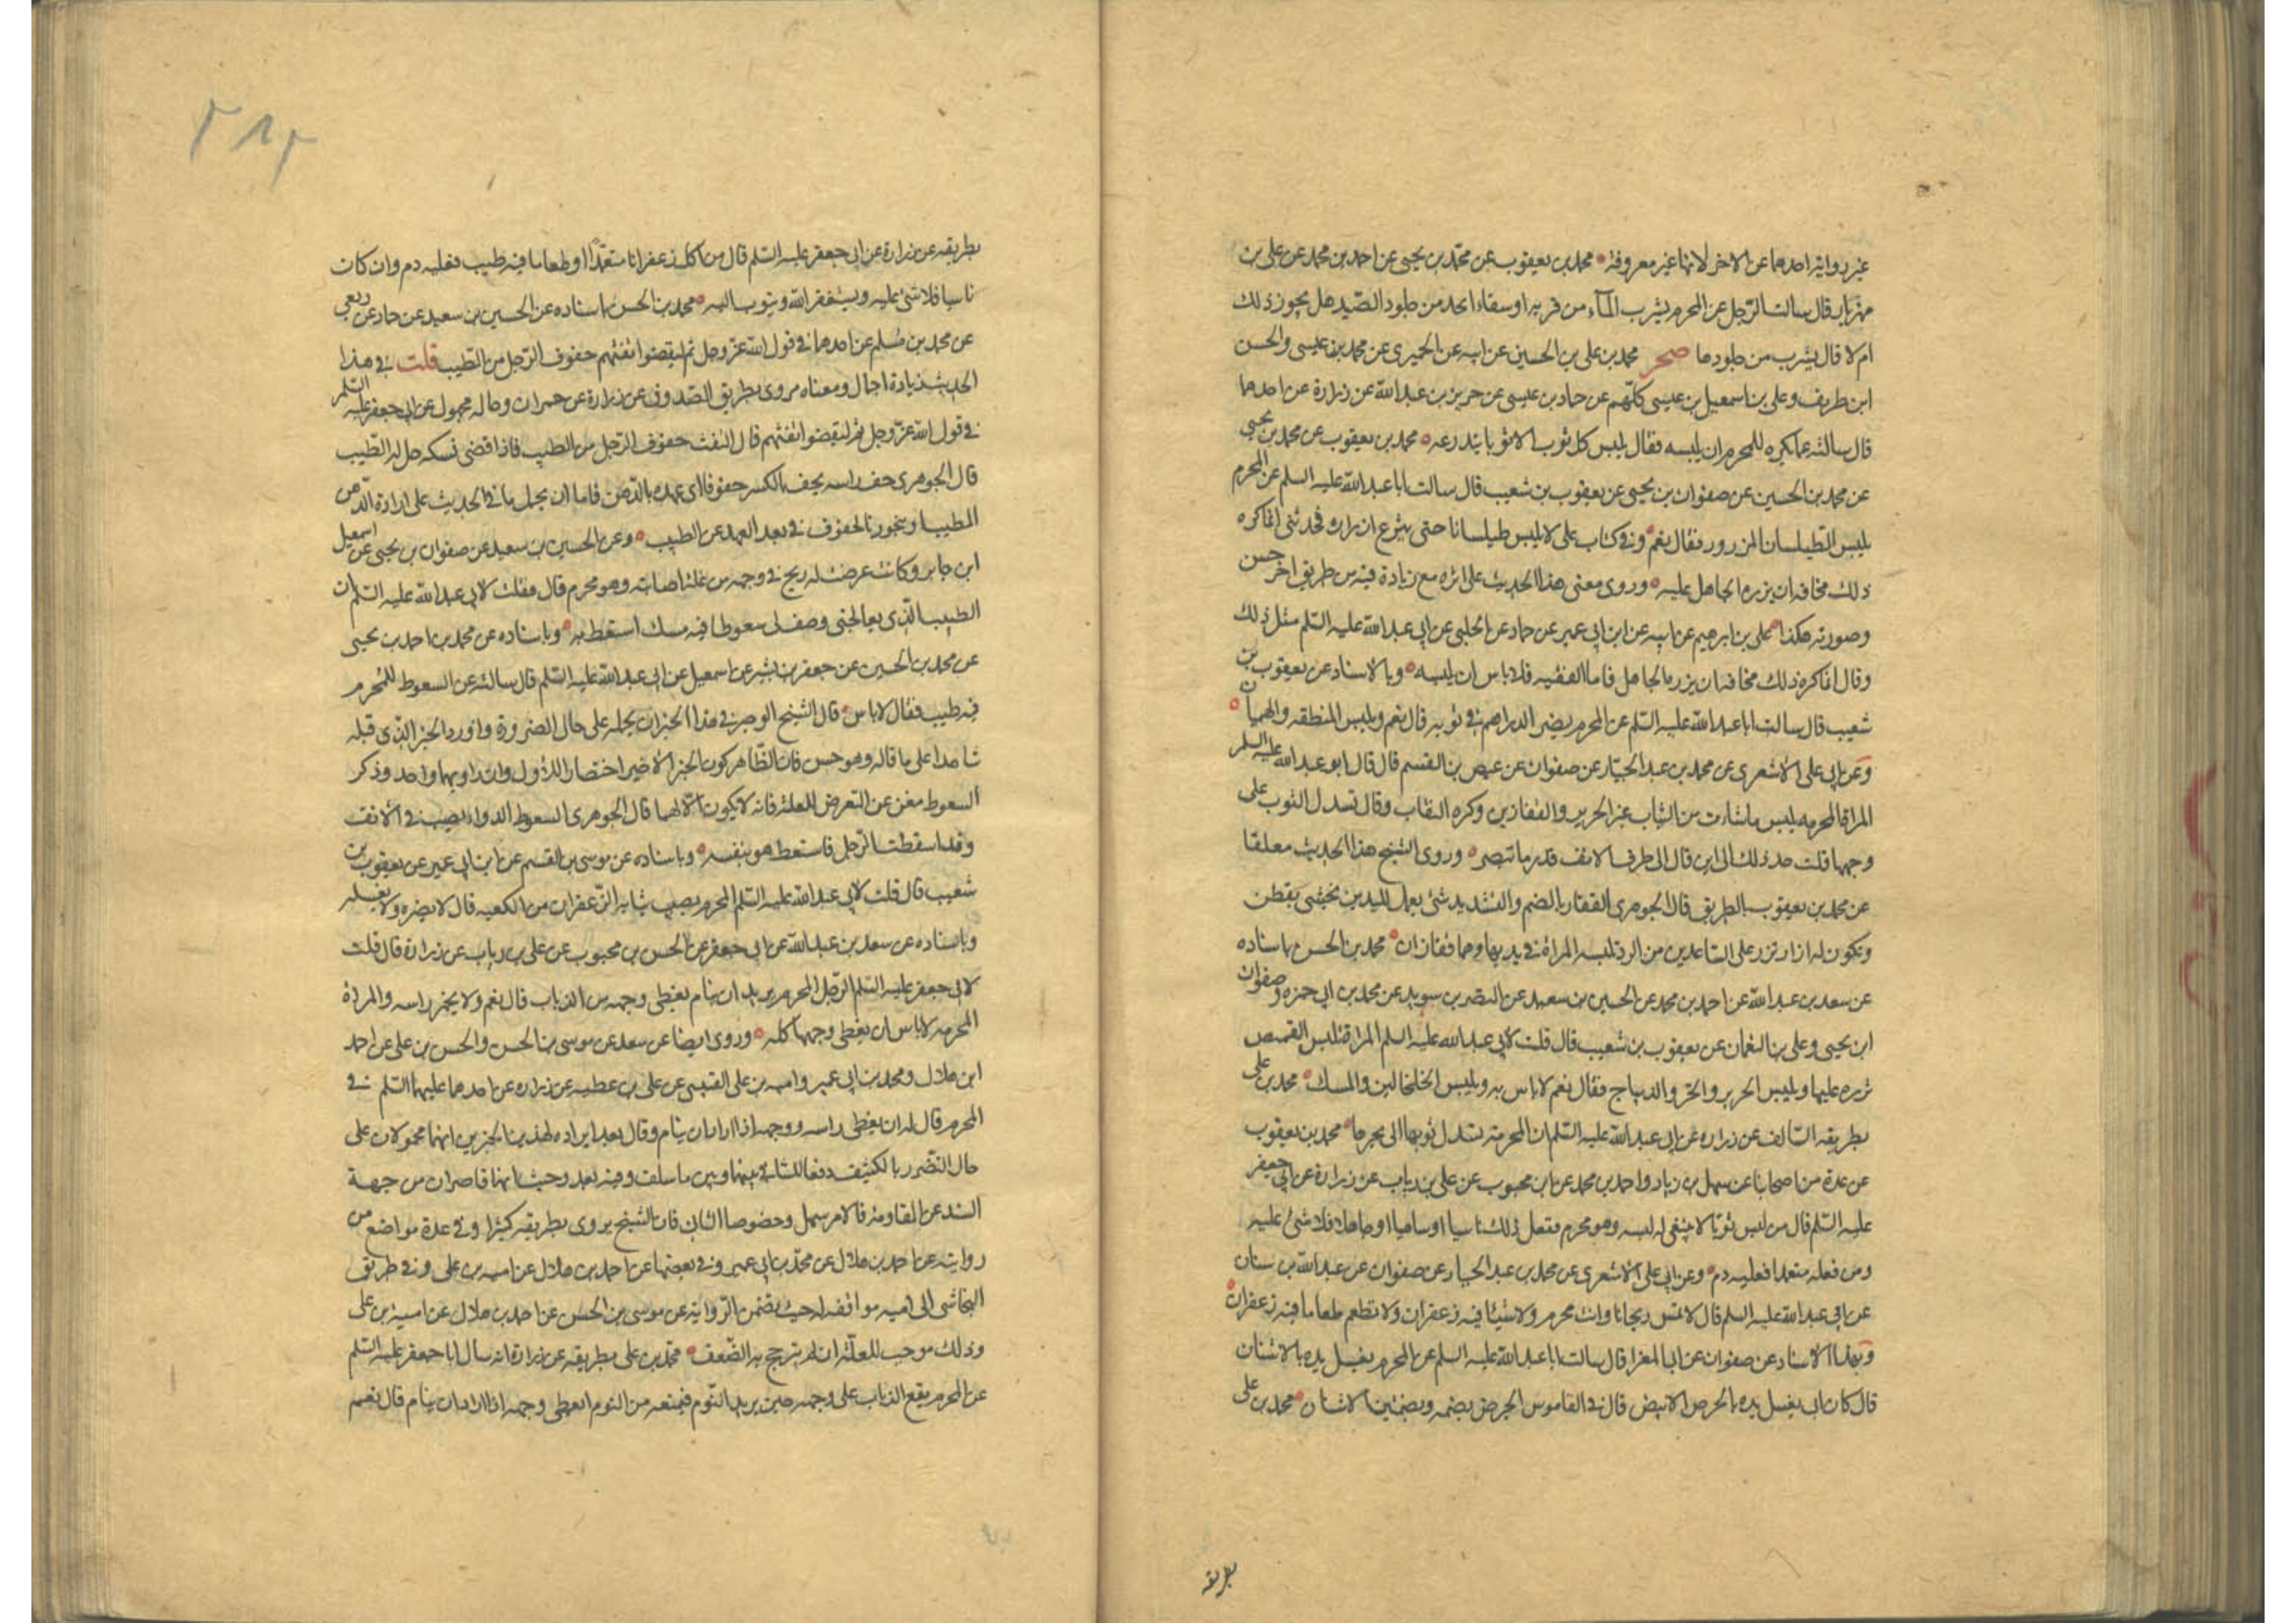 غير رواية احدهما عن الاخر لانها غير معروفة محمد بن يعقوب عن محمد بن يحيى عن احمد بن محمد عن علي بن
مهزيار قال سالت الرجل عن المحرم يشرب المآء من قربه او سقاء اتخذ من جلود الصيد هل يجوز ذلك
ام لا قال يشرب من جلودها صحر محمد بن علي بن الحسين عن ابيه عن الحميرى عن محمد بن عيسى والحسن
ابن طريف وعلي بن اسمعيل بن عيسى كلهم عن حماد بن عيسى عن حريز بن عبدالله عن زرارة عن احدهما
قال سالته عما يكره للمحرم ان يلبسه فقال يلبس كل ثوب الا ثوبا يتدرعه محمد بن يعقوب عن محمد بن يحيى
عن محمد بن الحسين عن صفوان بن يحيى عن يعقوب بن شعيب قال سالت ابا عبدالله عليه السلم عن المحرم
يلبس الطيلسان المزرور فقال نعم وفي كتاب علي لا يلبس طيلسانا حتى ينزع ازراره فحدثنى انما كره
ذلك مخافة ان يزره الجاهل عليه وروى معنى هذا الحديث على اثره مع زيادة فيه من طريق اخر حسن
وصورته هكذا علي بن ابرهيم عن ابيه عن ابن ابي عمير عن حماد عن الحلبي عن ابي عبدالله عليه السلم مثل ذلك
وقال انما كره ذلك مخافة ان يزره الجاهل فاما الفقيه فلا باس ان يلبسه وبالاسناد عن يعقوب بن
شعيب قال سالت ابا عبدالله عليه السلم عن المحرم يصر الدراهم في ثوبه قال نعم ويلبس المنطقه والهميان
وعن ابي علي الاشعرى عن محمد بن عبد الجبار عن صفوان عن عيص بن القسم قال قال ابو عبدالله عليه السلم
المراة المحرمه يلبس ما شاءت من الثياب غير الحرير والقفازين وكره النقاب وقال تسدل الثوب على
وجهها قلت حد ذلك الى اين قال الى طرف الانف قدر ما تبصر وروى الشيخ هذا الحديث معلقا
عن محمد بن يعقوب بالطريق قال الجوهرى القفاز بالضم والتشديد شئ يعمل لليدين يحشى بقطن
ويكون له ازرار تزر على الساعدين من البرد تلبسه المراة في يديها وهما قفازان محمد بن الحسن باسناده
عن سعد بن عبدالله عن احمد بن محمد عن الحسين بن سعيد عن النضر بن سويد عن محمد بن ابي حمزه وصفوان
ابن يحيى وعلي بن النعمان عن يعقوب بن شعيب قال قلت لابي عبدالله عليه السلم المراة تلبس القميص
تزره عليها ويلبس الحرير والخز والديباج فقال نعم لا باس به ويلبس الخلخالين والمسك محمد بن علي
بطريقه السالف عن زراره عن ابي عبدالله عليه السلم ان المحرمة تسدل ثوبها الى نحرها محمد بن يعقوب
عن عدة من اصحابنا عن سهل بن زياد واحمد بن محمد عن ابن محبوب عن علي بن رياب عن زرارة عن ابي جعفر
عليه السلم قال من لبس ثوبا لا ينبغى له لبسه وهو محرم ففعل ذلك ناسيا او ساهيا او جاهلا فلا شئ عليه
ومن فعله متعمدا فعليه دم وعن ابي علي الاشعرى عن محمد بن عبد الجبار عن صفوان عن عبدالله بن سنان
عن ابي عبدالله عليه السلم قال لا تمس ريحانا وانت محرم ولا شيئا فيه زعفران ولا تطعم طعاما فيه زعفران
وبهذا الاسناد عن صفوان عن ابي المغرا قال سالت ابا عبدالله عليه السلم عن المحرم يغسل يده بالاشنان
قال كان ابي يغسل يده بالحرض الابيض قال في القاموس الحرض بضمه وبضمتين الاشنان محمد بن علي
بطريقه
٣١٢
بطريقه عن زرارة عن ابي جعفر عليه السلم قال من اكل زعفرانا متعمدا او طعاما فيه طيب فعليه دم وان كان
ناسيا فلا شئ عليه ويستغفر الله ويتوب اليه محمد بن الحسن باسناده عن الحسين بن سعيد عن حماد عن ربعي
عن محمد بن مسلم عن احدهما في قول الله عز وجل ثم ليقضوا تفثهم حفوف الرجل من الطيب قلت في هذا
الحديث زيادة اجمال ومعناه مروى بطريق الصدوق عن زرارة عن حمران وحاله مجهول عن ابي جعفر عليه السلم
في قول الله عز وجل ثم ليقضوا تفثهم قال التفث حفوف الرجل من الطيب فاذا قضى نسكه حل له الطيب
قال الجوهرى حف راسه يحف بالكسر حفوفا اى بعد عهده بالدهن فاما ان يحمل ما في الحديث على ارادة الدهن
المطيب او بتجوز بالحفوف في بعد العهد عن الطيب وعن الحسين بن سعيد عن صفوان بن يحيى عن اسمعيل
ابن جابر وكانت عرضت له ريح في وجهه من علة اصابته وهو محرم قال فقلت لابي عبدالله عليه السلم ان
الطبيب الذى يعالجنى وصف لى سعوطا فيه مسك استعط به وباسناده عن محمد بن احمد بن يحيى
عن محمد بن الحسين عن جعفر بن بشير عن اسمعيل عن ابي عبدالله عليه السلم قال سالته عن السعوط للمحرم
فيه طيب فقال لا باس قال الشيخ الوجه في هذا الخبر ان نحمله على حال الضرورة واورد الخبر الذى قبله
شاهدا على ما قاله وهو حسن فان الظاهر كون الخبر الاخير اختصارا للاول وان راويهما واحد وذكر
السعوط مغن عن التعرض للعلة فانه لا يكون الا لها قال الجوهرى السعوط الدواء يصب في الانف
وقد اسقطت الرجل فاستعط هو بنفسه وباسناده عن موسى بن القسم عن ابن ابي عمير عن يعقوب بن
شعيب قال قلت لابي عبدالله عليه السلم المحرم يصيب ثيابه الزعفران من الكعبه قال لا يضره ولا يغسله
وباسناده عن سعد بن عبدالله عن ابي جعفر عن الحسن بن محبوب عن علي بن رياب عن زرارة قال قلت
لابي جعفر عليه السلم الرجل المحرم يريد ان ينام يغطى وجهه من الذباب قال نعم ولا يخمر راسه والمراة
المحرمه لا باس ان يغطى وجهها كله وروى ايضا عن سعد عن موسى بن الحسن والحسن بن علي عن احمد
ابن هلال ومحمد بن ابي عمير واميه بن علي القيسى عن علي بن عطيه عن زراره عن احدهما عليهما السلم في
المحرم قال له ان يغطى راسه ووجهه اذا اراد ان ينام وقال بعد ايراده لهذين الخبرين انهما محمولان على
حال التضرر بالكشف دفعا للتنافى بينهما وبين ما سلف وفيه بعد وحيث انهما قاصران من جهة
السند عن المقاومة فالامر سهل وخصوصا الثانى فان الشيخ يروى بطريقه كثيرا وفي عدة مواضع من
روايته عن احمد بن هلال عن محمد بن ابي عمير وفي بعضها عن احمد بن هلال عن اميه بن علي وفي طريق
النجاشى الى اميه موافقه له حيث يتضمن الرواية عن موسى بن الحسن عن احمد بن هلال عن امية بن علي
وذلك موجب للعلة ان لم يترجح به الضعف محمد بن علي بطريقه عن زرارة انه سال ابا جعفر عليه السلم
عن المحرم يقع الذباب على وجهه حين يريد النوم فيمنعه من النوم ايغطى وجهه اذا اراد ان ينام قال نعم